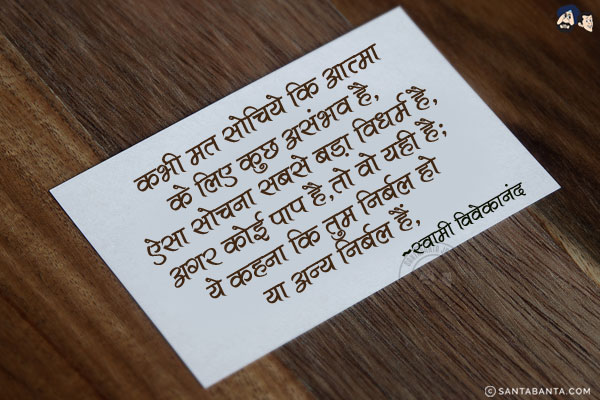 कभी मत सोचिये कि आत्मा
के लिए कुछ असंभव है,
ऐसा सोचना सबसे बड़ा विधर्म है,
अगर कोई पाप है,तो वो यही है;
ये कहना कि तुम निर्बल हो
या अन्य निर्बल हैं,
-स्वामी विवेकानंद
© SANTABANTA.COM